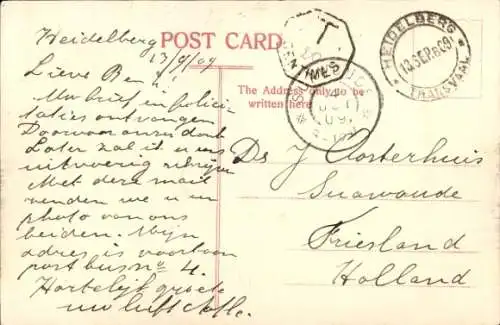 Heidelberg
13/9/09
POST CARD.
HEIDELBERG
13 SEP. 09
TRANSVAAL
T
The Address only to be
written here
Lieve Ben
Uw brief en felici-
taties ontvangen
Daarvoor onze dank
Later zal ik u eens
uitvoerig schrijven
Met deze mail
zenden we u een
photo van ons
beiden. Mijn
adres is voortaan
postbus no 4.
Hartelijk groete
uw
Ds J Oosterhuis
Suawoude
Friesland
Holland